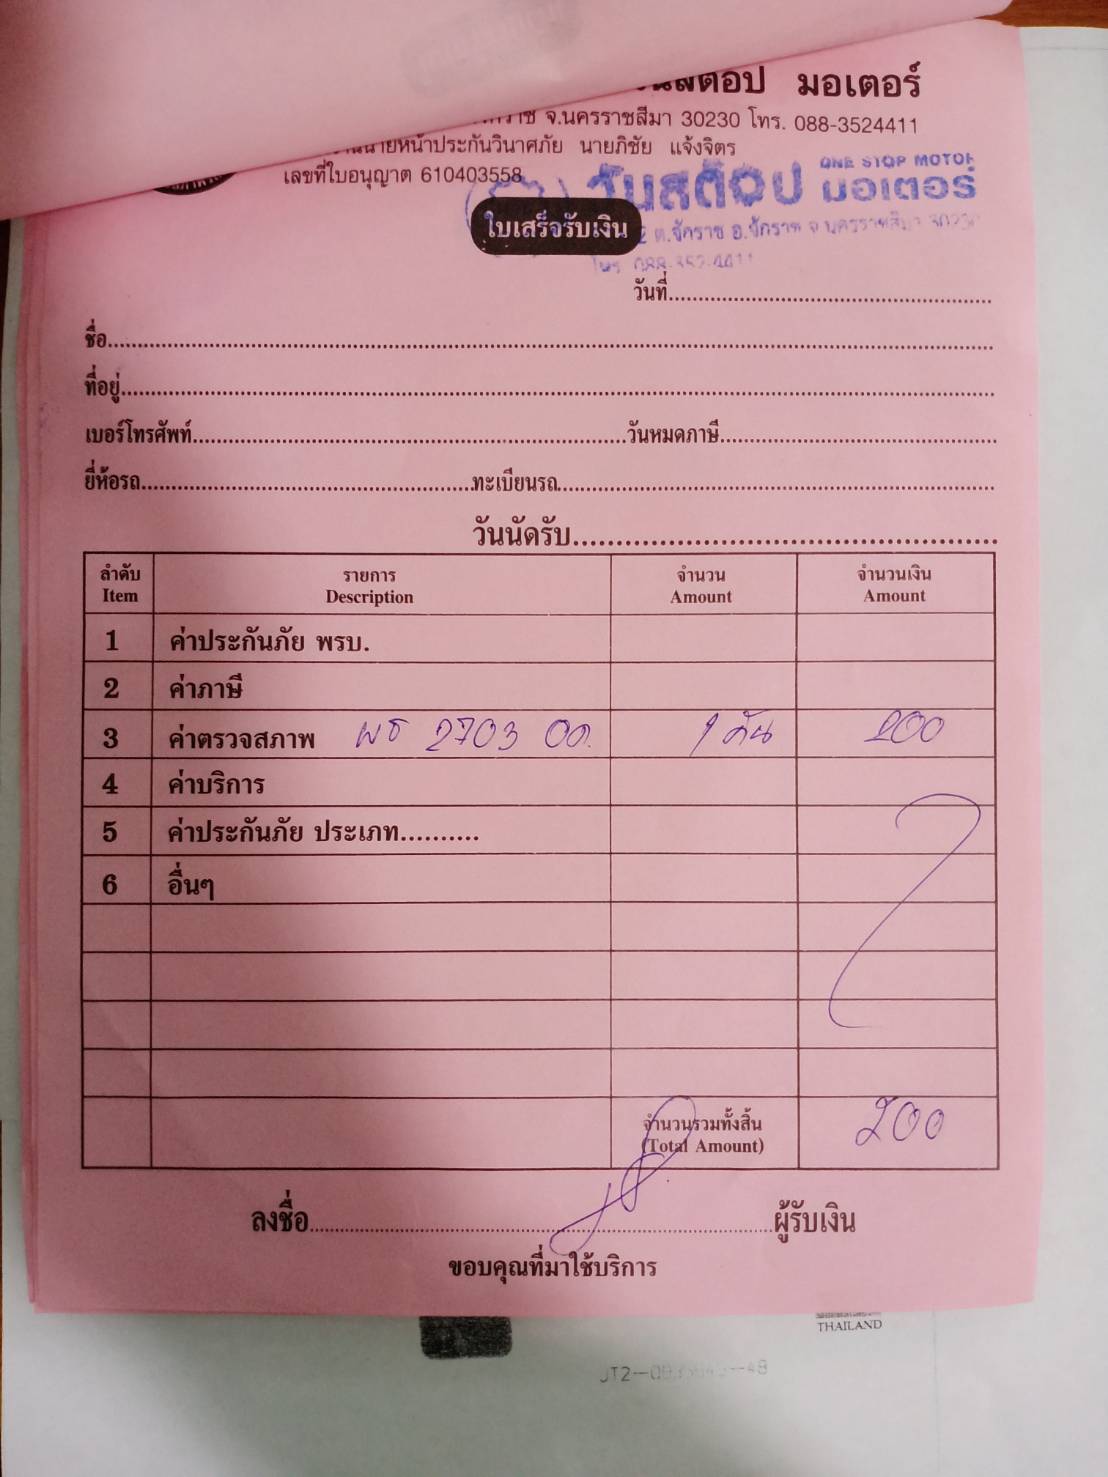 มอเตอร์
จ.นครราชสีมา 30230 โทร. 088-3524411
นายหน้าประกันวินาศภัย นายภิชัย แจ้งจิตร
เลขที่ใบอนุญาต 610403558
ONE STOP MOTOR
วันสต๊อป มอเตอร์
ต.จักราช อ.จักราช จ.นครราชสีมา 30230
โทร. 088-352-4411
ใบเสร็จรับเงิน
วันที่
ชื่อ
ที่อยู่
เบอร์โทรศัพท์ วันหมดภาษี
ยี่ห้อรถ ทะเบียนรถ
วันนัดรับ
ลำดับ รายการ จำนวน จำนวนเงิน
Item Description Amount Amount
1 ค่าประกันภัย พรบ.
2 ค่าภาษี
3 ค่าตรวจสภาพ 2703 1 คัน 200
4 ค่าบริการ
5 ค่าประกันภัย ประเภท..........
6 อื่นๆ
จำนวนรวมทั้งสิ้น
(Total Amount) 200
ลงชื่อ ผู้รับเงิน
ขอบคุณที่มาใช้บริการ
THAILAND